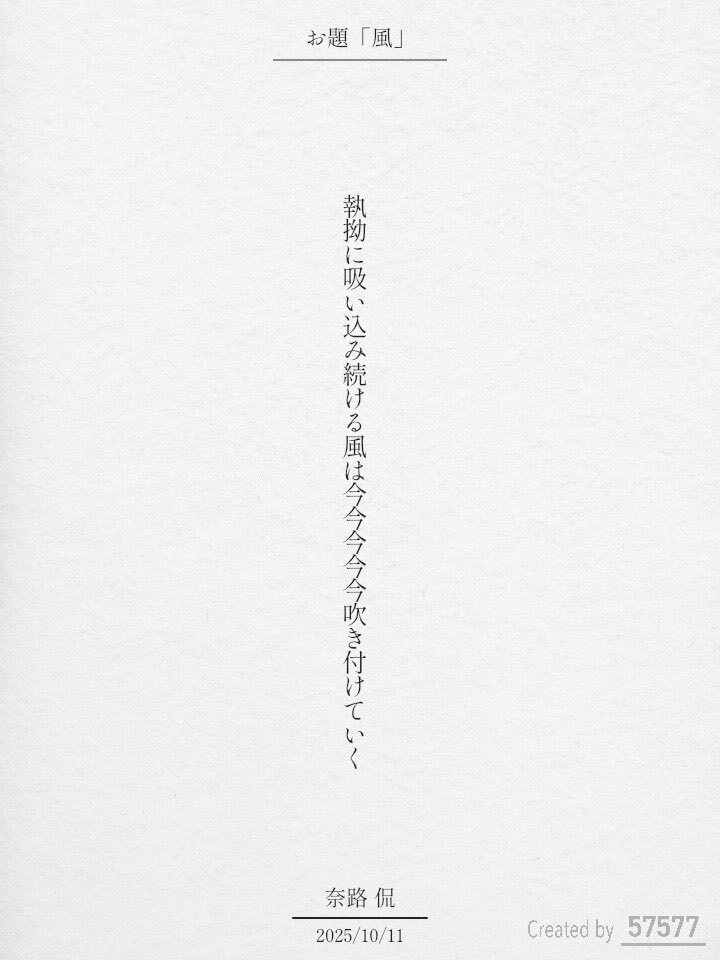 お題「風」
執拗に吸い込み続ける風は今今今今今吹き付けていく
奈路 侃
2025/10/11
Created by 57577